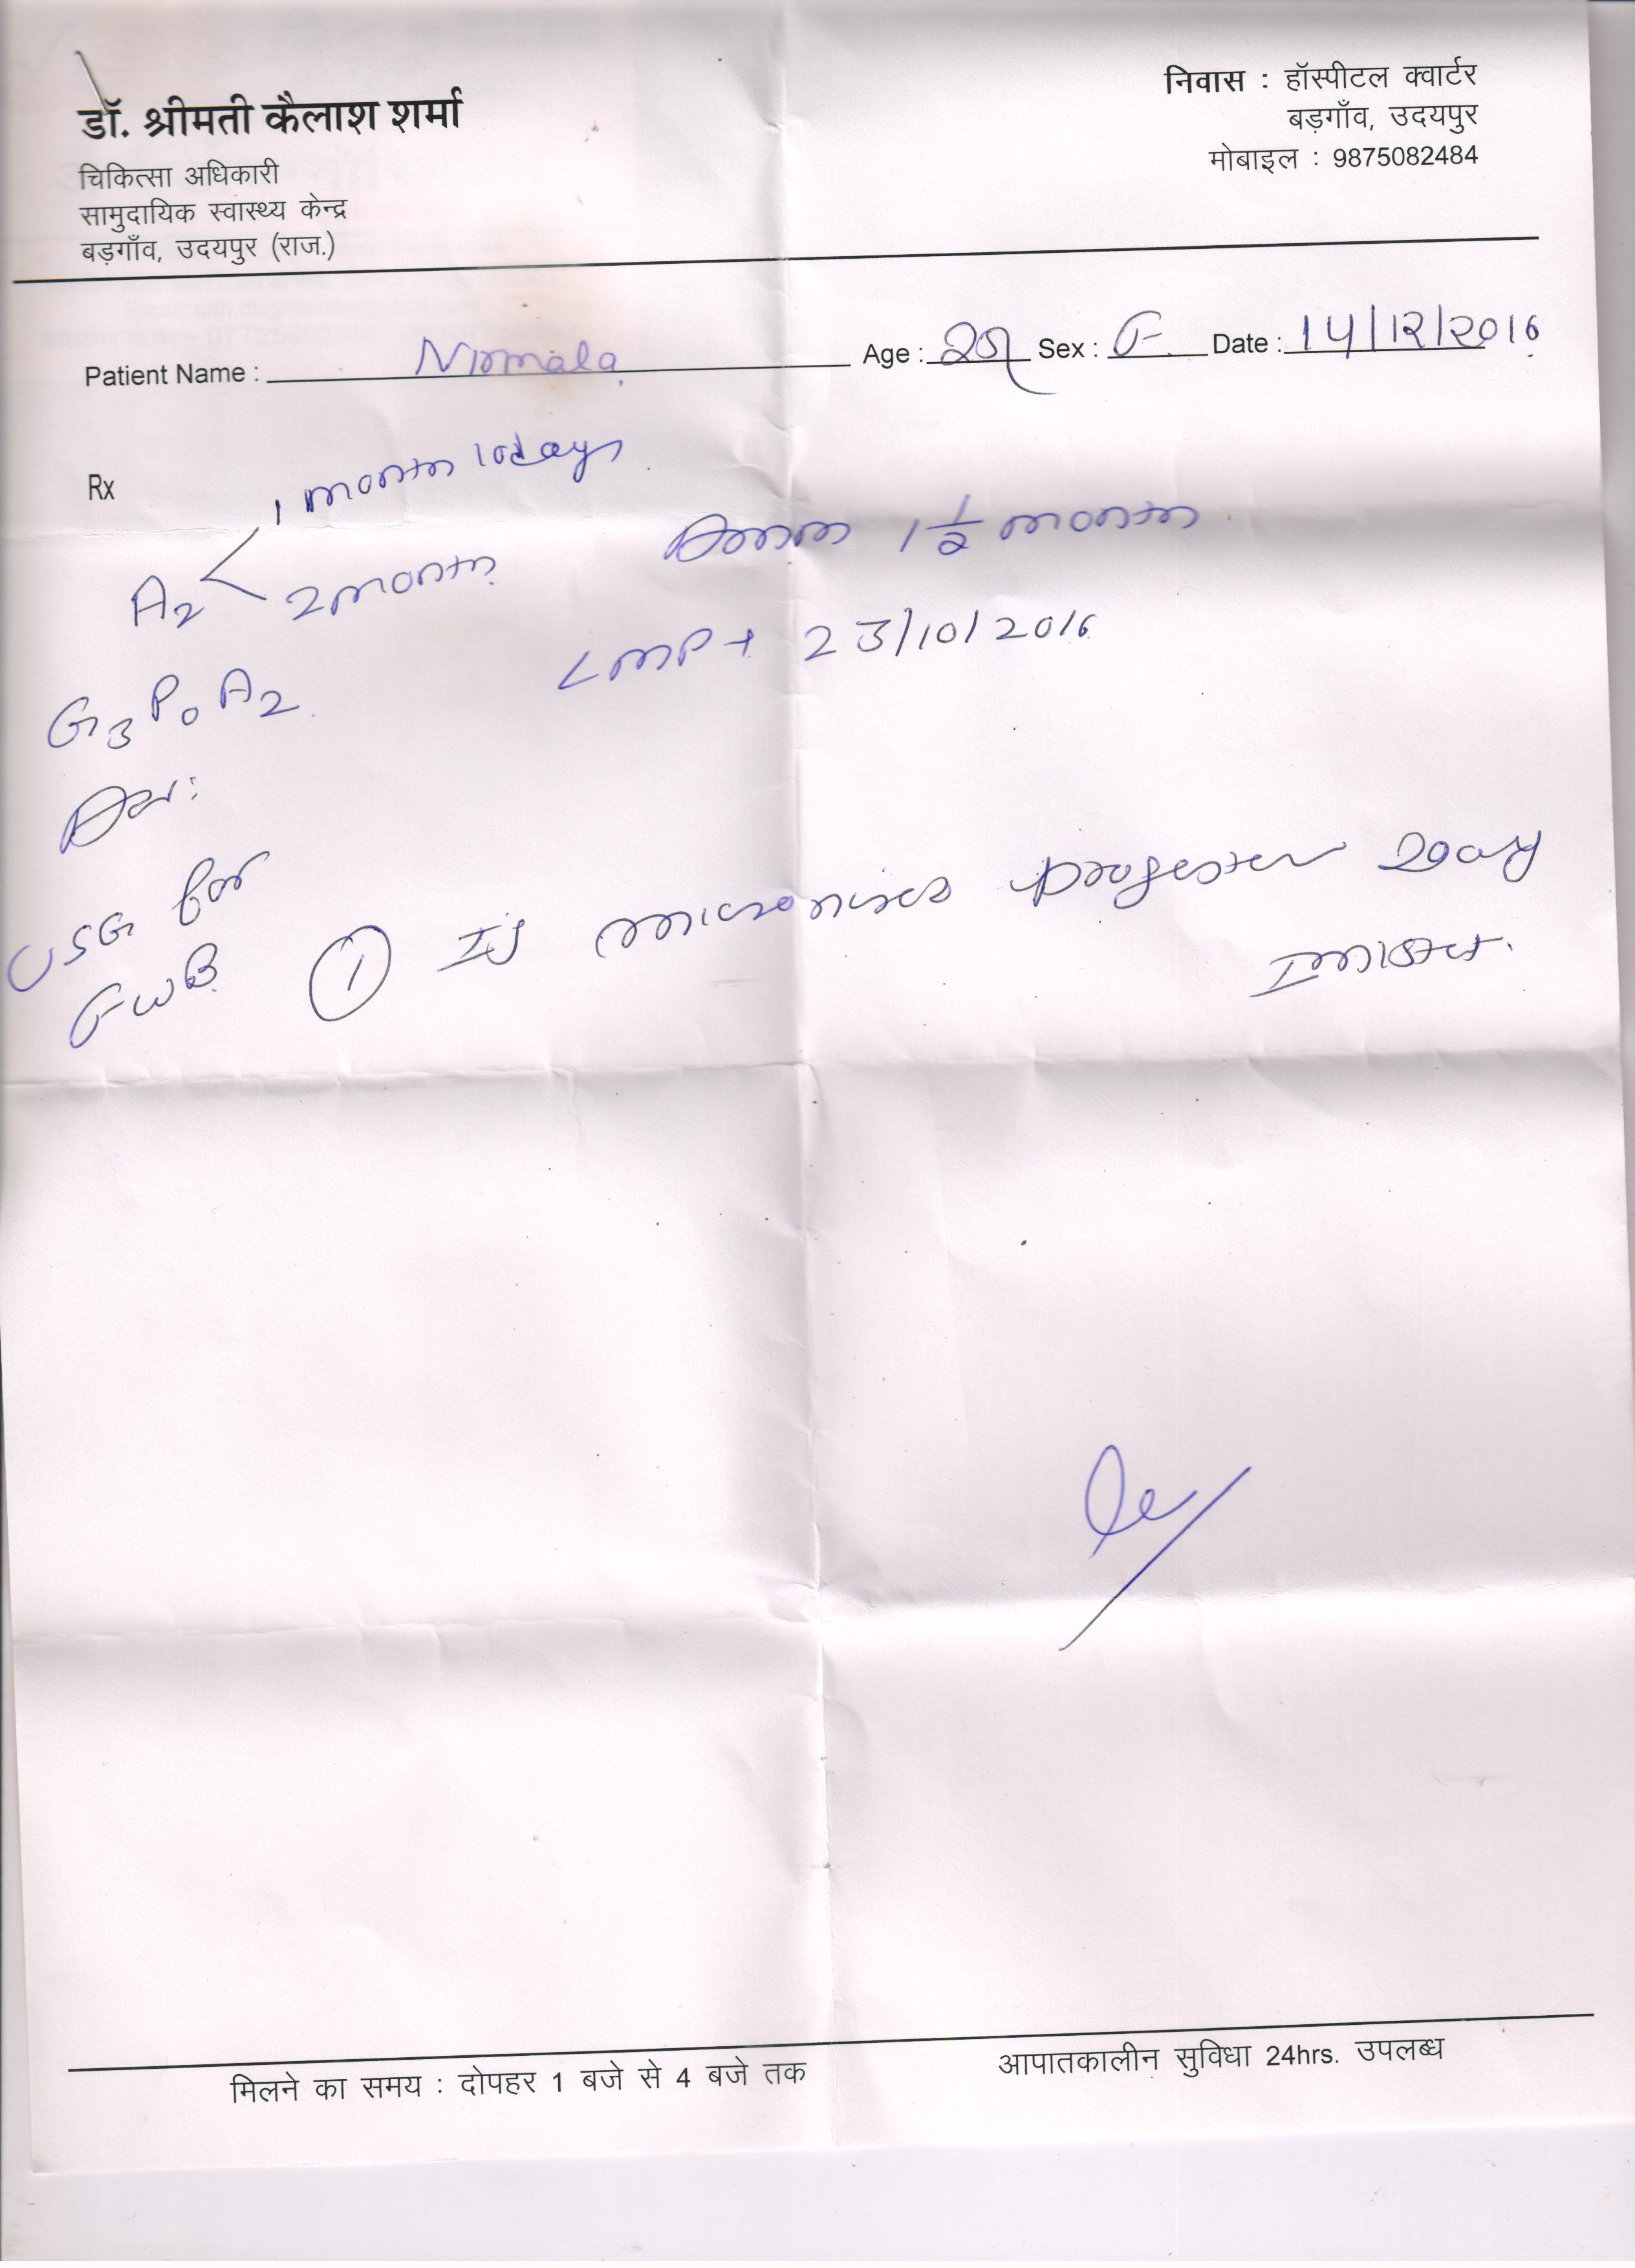 डॉ. श्रीमती कैलाश शर्मा
चिकित्सा अधिकारी
सामुदायिक स्वास्थ्य केन्द्र
बड़गाँव, उदयपुर (राज.)
निवास : हॉस्पीटल क्वार्टर
बड़गाँव, उदयपुर
मोबाइल : 9875082484
Patient Name : Nirmala Age : Sex : F Date : 14/12/2016
Rx
1 month 10days
A2 2month 1 1/2 month
LMP 23/10/2016
G3 P0 A2
Adv:
USG for
FWB
① Inj micronised progester
मिलने का समय : दोपहर 1 बजे से 4 बजे तक
आपातकालीन सुविधा 24hrs. उपलब्ध